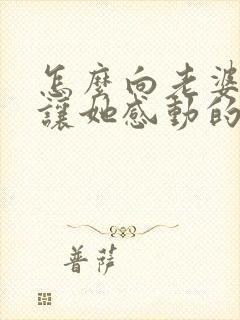 怎麼向老婆
讓她感動的
普薩